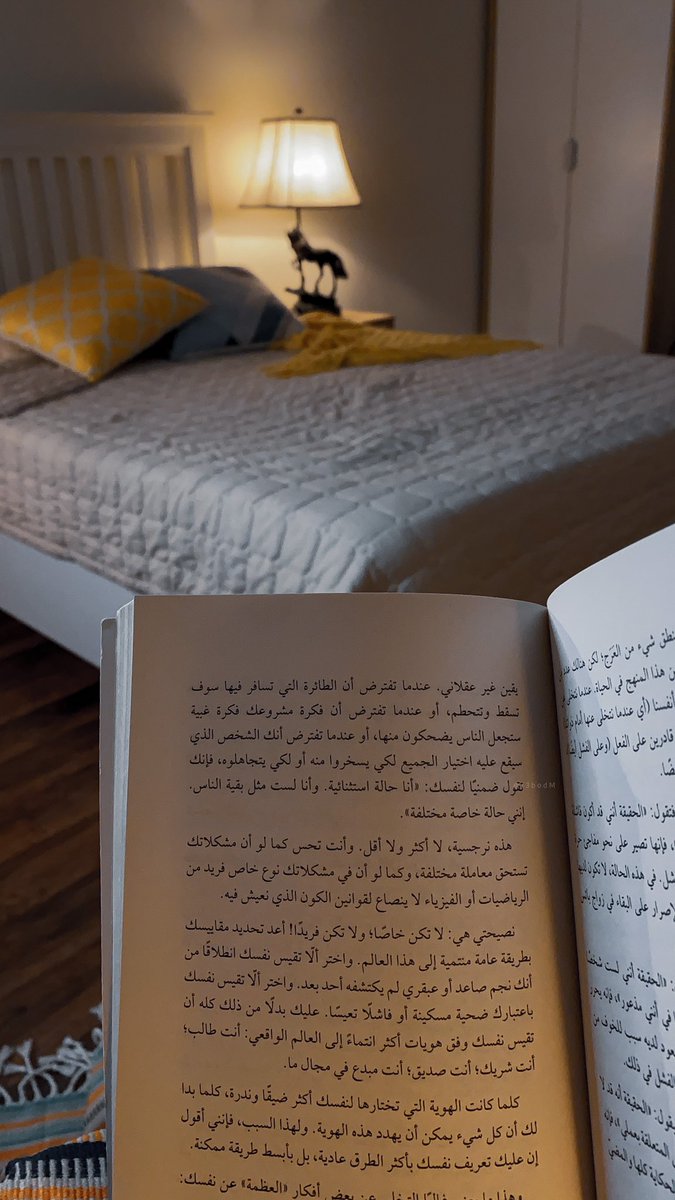 يقين غير عقلاني. عندما تفترض أن الطائرة التي تسافر فيها سوف
تسقط وتتحطم، أو عندما تفترض أن فكرة مشروعك فكرة غبية
ستجعل الناس يضحكون منها، أو عندما تفترض أنك الشخص الذي
سيقع عليه اختيار الجميع لكي يسخروا منه أو لكي يتجاهلوه، فإنك
تقول ضمنيًا لنفسك: «أنا حالة استثنائية. وأنا لست مثل بقية الناس.
إنني حالة خاصة مختلفة».
هذه نرجسية، لا أكثر ولا أقل. وأنت تحس كما لو أن مشكلاتك
تستحق معاملة مختلفة، وكما لو أن في مشكلاتك نوع خاص فريد من
الرياضيات أو الفيزياء لا ينصاع لقوانين الكون الذي نعيش فيه.
نصيحتي هي: لا تكن خاصًا؛ ولا تكن فريدًا! أعد تحديد مقاييسك
بطريقة عامة منتمية إلى هذا العالم. واختر ألّا تقيس نفسك انطلاقًا من
أنك نجم صاعد أو عبقري لم يكتشفه أحد بعد. واختر ألّا تقيس نفسك
باعتبارك ضحية مسكينة أو فاشلًا تعيسًا. عليك بدلًا من ذلك كله أن
تقيس نفسك وفق هويات أكثر انتماءً إلى العالم الواقعي: أنت طالب؛
أنت شريك؛ أنت صديق؛ أنت مبدع في مجال ما.
كلما كانت الهوية التي تختارها لنفسك أكثر ضيقًا وندرة، كلما بدا
لك أن كل شيء يمكن أن يهدد هذه الهوية. ولهذا السبب، فإنني أقول
إن عليك تعريف نفسك بأكثر الطرق عادية، بل بأبسط طريقة ممكنة.
وهذا ما يعني غالبًا التخلي عن بعض أفكار «العظمة» عن نفسك:
شيء من العَرَج؛ لكن هنالك
هذا المنهج في الحياة. عندما نتخلى
أنفسنا (أي عندما نتخلى عنها أمام
قادرين على الفعل (وعلى الفشل
فتقول: «الحقيقة أنني قد أكون
فإنها تصير على نحو مفاجئ
في هذه الحالة، لا تكون
على البقاء في زواج
«الحقيقة أنني لست
في أنني مذعور»، فإنه
لديه سبب للخوف من
الفشل في ذلك.
«الحقيقة أنه قد لا
المتعلقة بعملي»، فإنه
الحكاية كلها